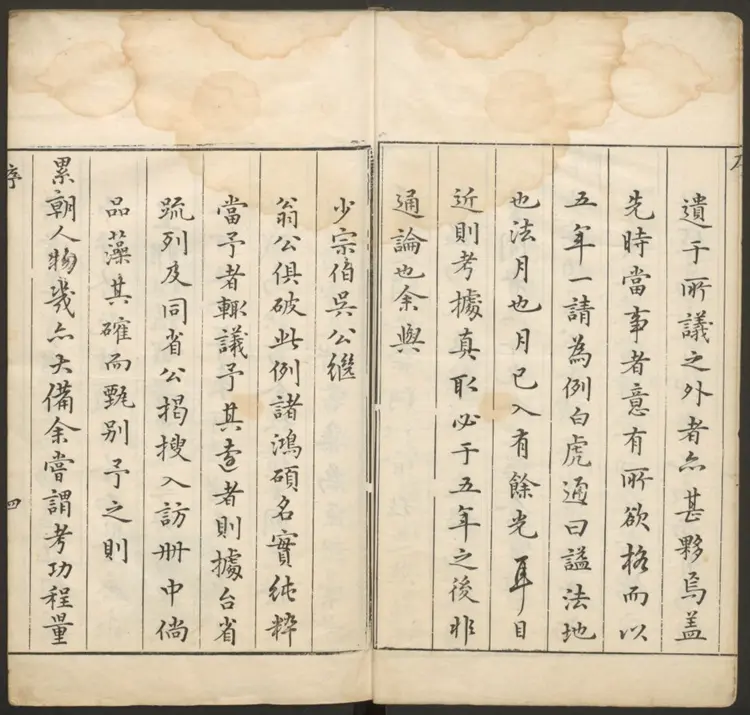 遺于所議之外者亦甚夥焉蓋
先時當事者意有所欲格而以
五年一請為例白虎通曰謚法地
也法月也月已入有餘光耳目
近則考據真取必于五年之後非
通論也余與
少宗伯吳公繼
翁公俱破此例諸鴻碩名實純粹
當予者輒議予其遺者則據台省
疏列及同省公揭搜入訪冊中倘
品藻其確而甄别予之則
累朝人物幾亦大備余嘗謂考功程量
序
四